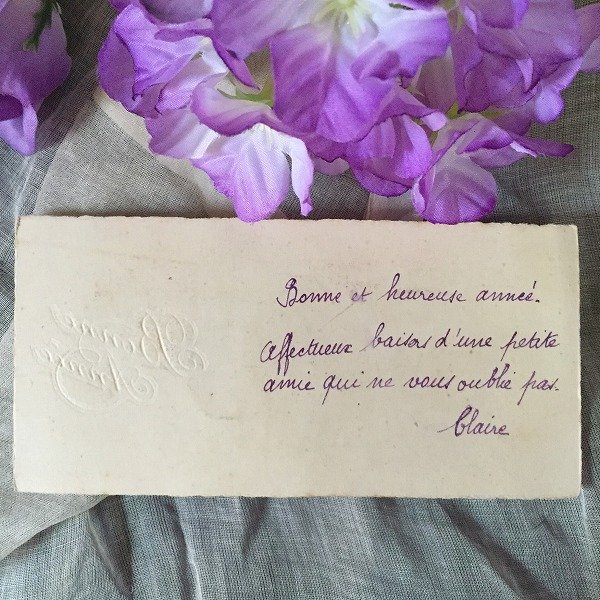 Bonne et heureuse anneé.
Affectueux baisers d'une petite
amie qui ne vous oublie pas.
Claire
Bonne
Année